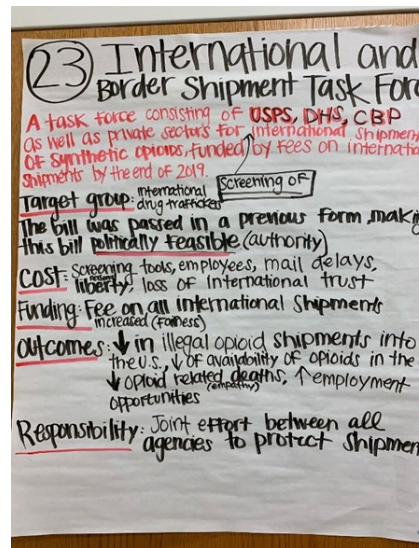 23 International and
Border Shipment Task For
A task force consisting of USPS, DHS, CBP
as well as private sectors for international shipmen
of synthetic opioids, funded by fees on internatio
shipments by the end of 2019.
Screening of
Target group: international
drug traffickers
The bill was passed in a previous form, makin
this bill politically feasible (authority)
Cost: Screening tools, employees, mail delays,
liberty, loss of International trust
Funding: Fee on all international Shipments
increased (Fairness)
Outcomes: ↓ in illegal opioid shipments into
the U.S., ↓ of availability of opioids in the
↓ opioid related deaths, ↑ employment
(empathy)
opportunities
Responsibility: Joint effort between all
agencies to protect shipmen